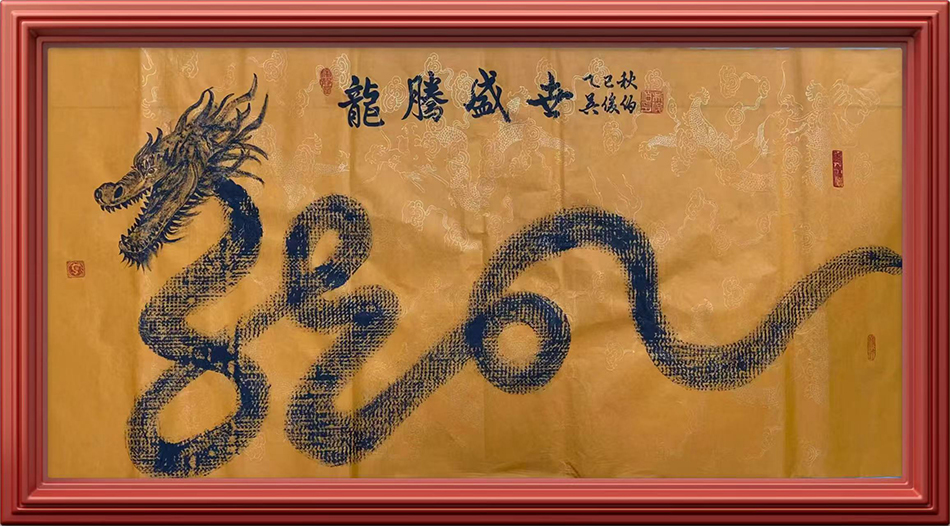 龍騰盛世
乙巳秋
吴俊伯